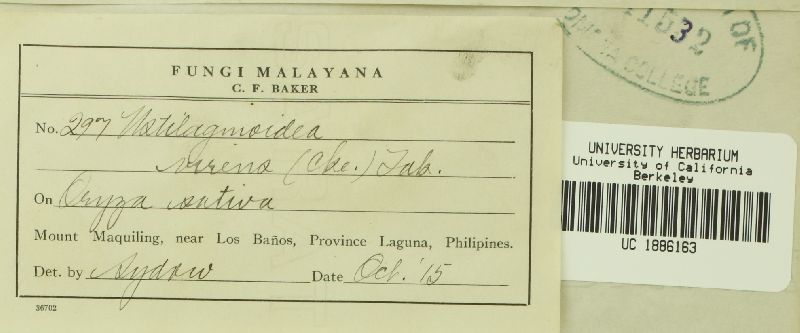 FUNGI MALAYANA
C. F. BAKER
No. 297 Ustilaginoidea
virens (Cke.) Tak.
On Oryza sativa
Mount Maquiling, near Los Baños, Province Laguna, Philipines.
Det. by Sydow Date Oct. '15
36702
OF
11532
POMONA COLLEGE
UNIVERSITY HERBARIUM
University of California
Berkeley
UC 1886163